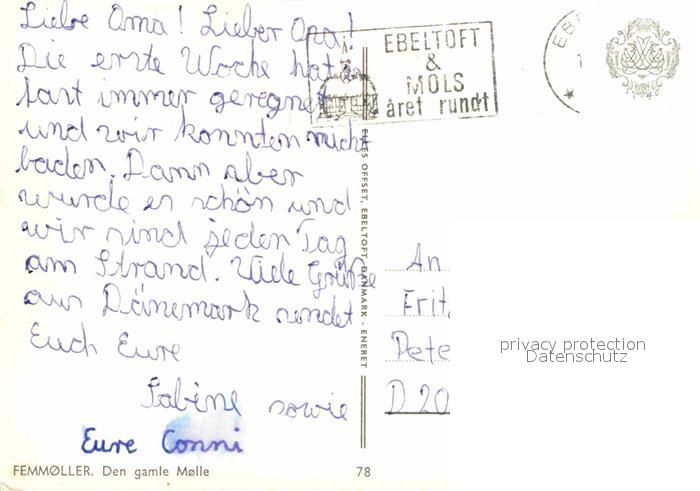 Liebe Oma! Lieber Opa!
Die erste Woche hat es
fast immer geregnet
und wir konnten nicht
baden. Dann aber
wurde es schön und
wir sind jeden Tag
am Strand. Viele Grüße
aus Dänemark sendet
Euch Eure
Sabine sowie
Eure Conni
FEMMØLLER. Den gamle Mølle
78
EBELTOFT
&
MOLS
året rundt
EBE
OFFSET, EBELTOFT, DANMARK - ENERET
An
Frit
Pete
D 20
privacy protection
Datenschutz